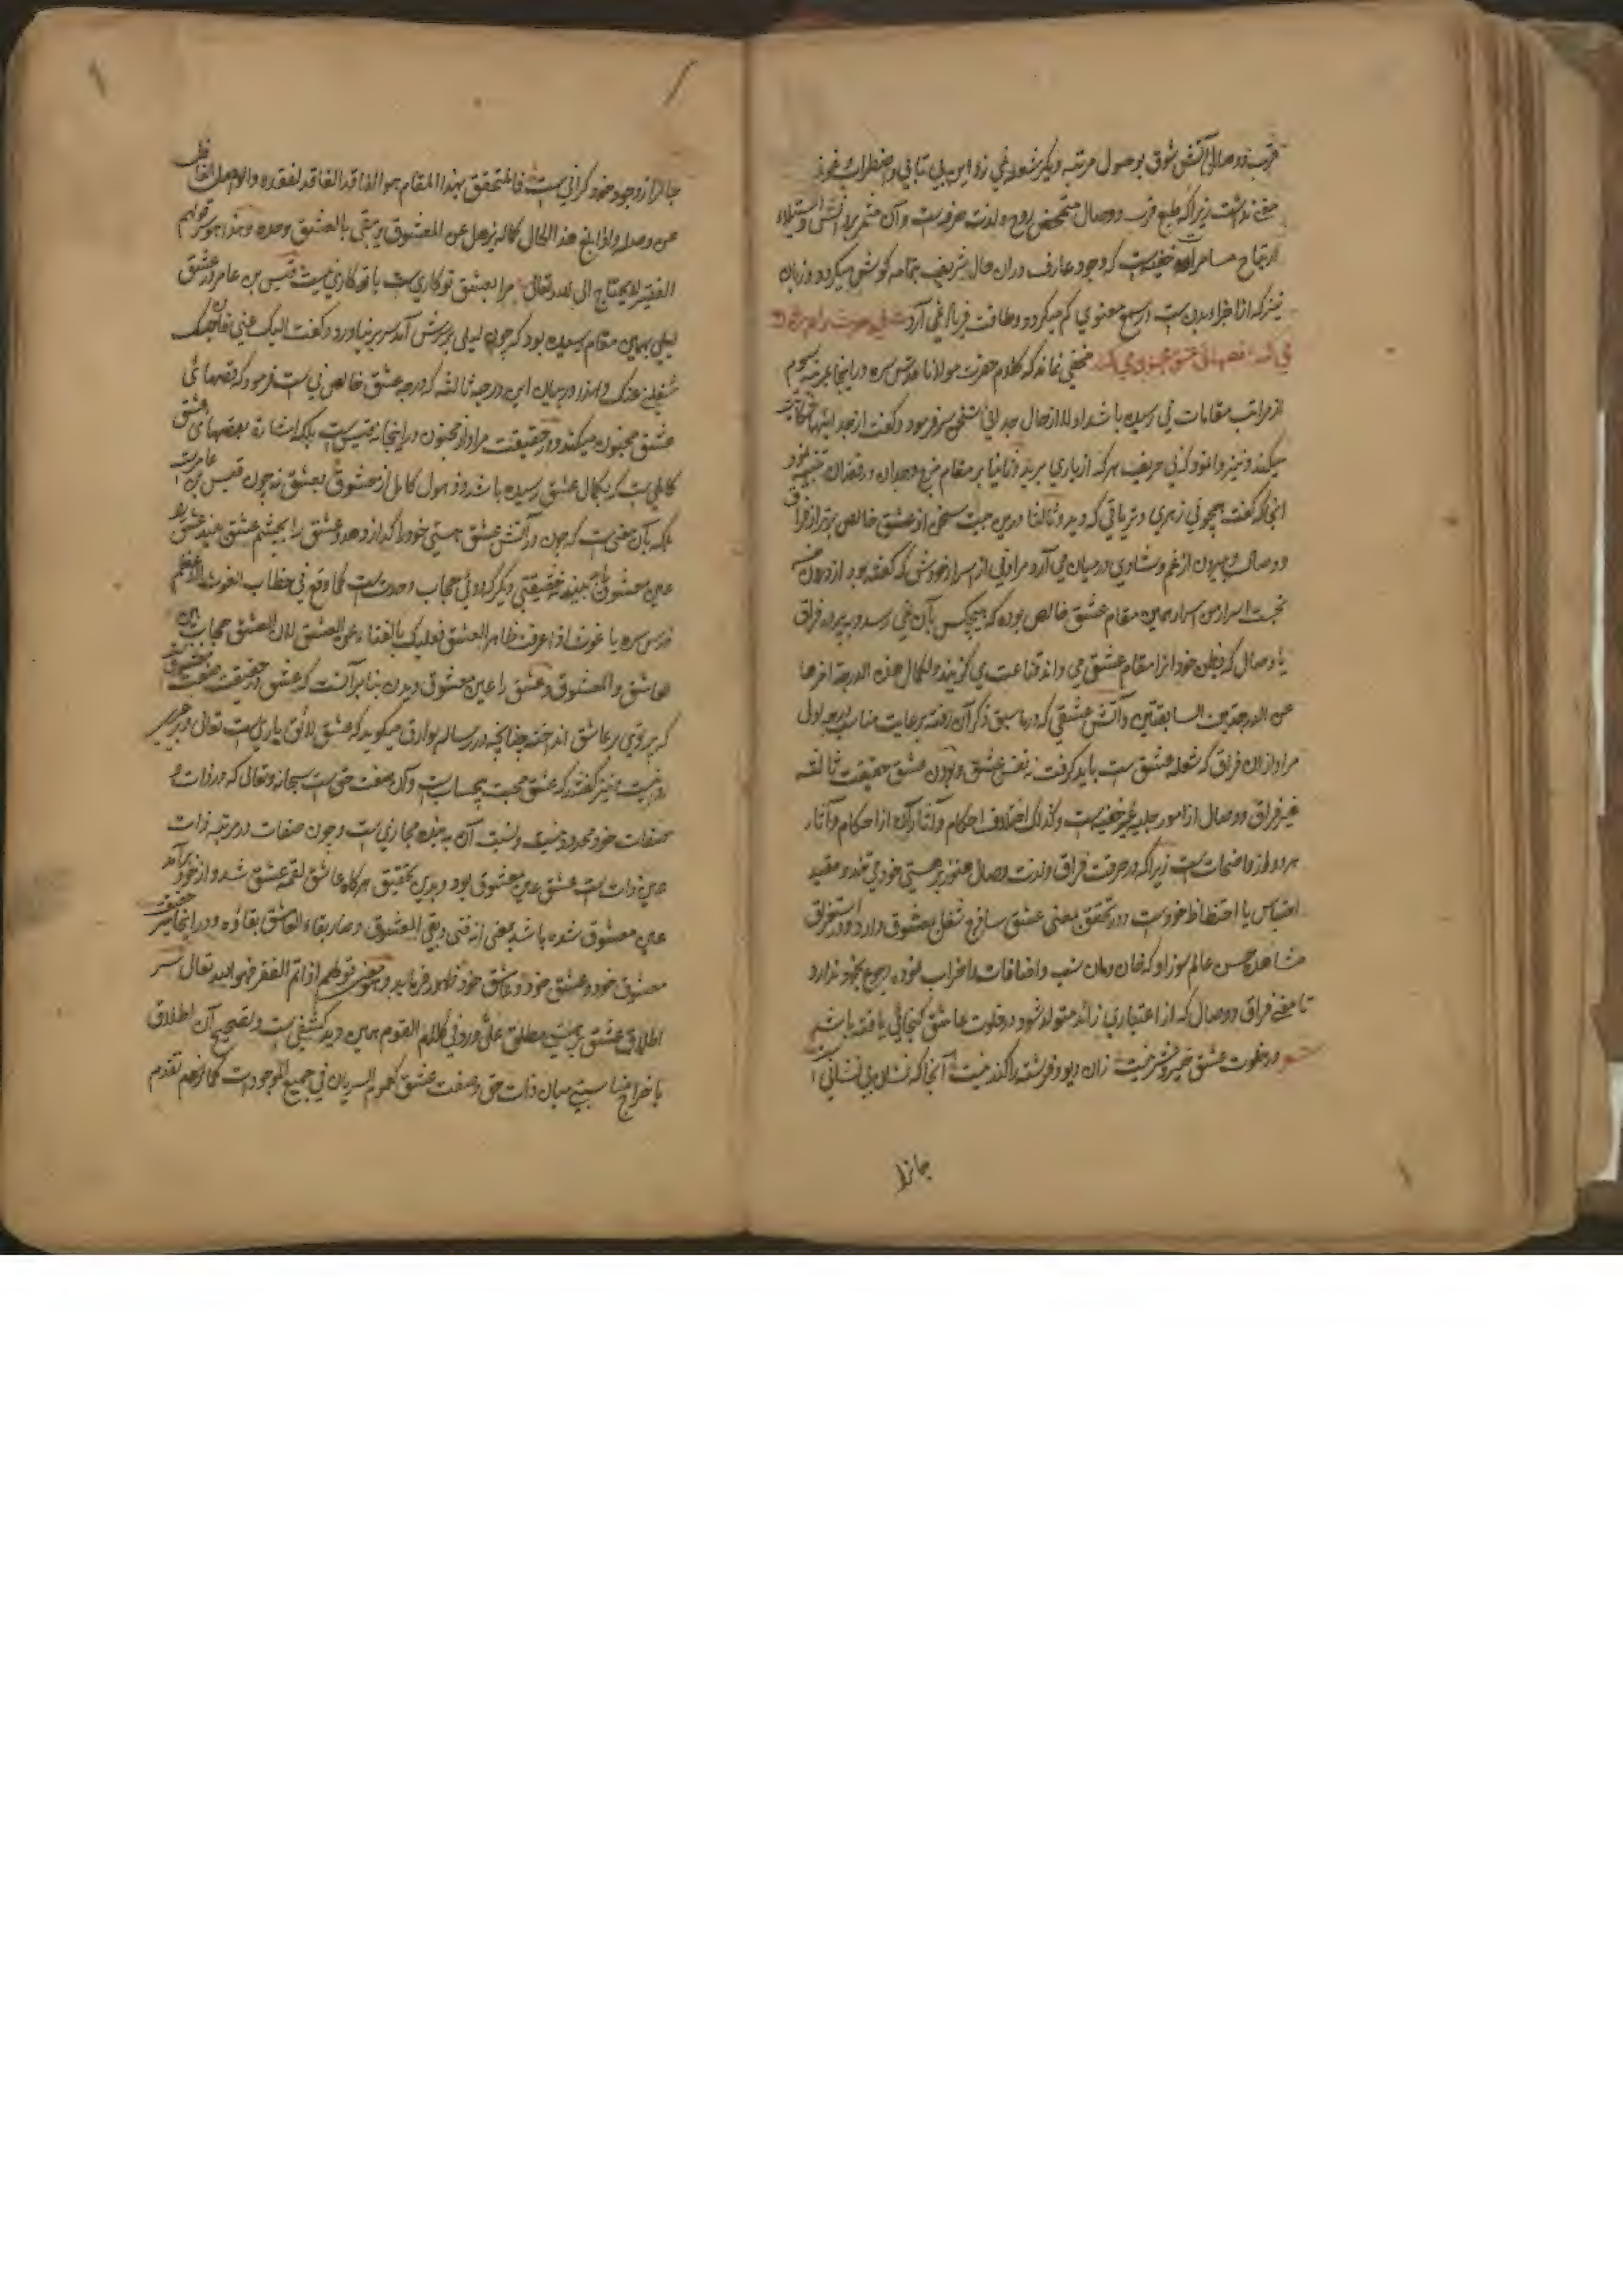 قرب و وصال آتش شوق بوصول مرتبه دیگر شعله نمی زد این بی تابی و اضطراب خود
معنی نداشت زیرا که طبع قرب و وصال متمحض روح و لذت صرفست و آن مثمر
که وجود عارف دران حال شریف بتمامه گوش میگردد و زبان
نیز که از اجزاء بدن ست معنوی گم میگردد و طاقت فریاد نمی آرد
نی قصهای عشق مجنون می کند مخفی نماند که کلام حضرت مولانا قدس سره درینجا بمرتبه سوم
از مراتب مقامات نی رسیده باشد اولا از حال جدائی سخن سر فرمود و گفت از جدائیها شکایت
میکند و نیز وا نمود که نی حریف هر که از یاری برید و ثانیا بر مقام مزج وجدان و فقدان تنبیه نمود
انجا که گفت همچو نی زهری و تریاقی که دید و ثالثا درین بیت سخن از عشق خالص برتر از فراق
و وصال و بیرون از غم و شادی در میان می آرد مراد نی از اسرار خودش که گفته بود از درون من
نجست اسرار من اسرار همین مقام عشق خالص بوده که هیچکس بآن نمی رسد و به پرده فراق
یا وصال که بظن خود انرا مقام عشق می داند قناعت می گزیند و لکمال هذه الدرجة اخرها
عن الدرجتین السابقتین و آتش عشقی که در ما سبق ذکر آن رفته برعایت مناسب درجه اول
مراد ازان فراق که شعله عشق ست باید گرفت نه نفس عشق و بودن عشق حقیقت ثالثه
غیر فراق و وصال از امور جلیه غیر خفیه ست و کذلک اختلاف احکام و آثار آن از احکام و آثار
هر دو از واضحات ست زیرا که در حرقت فراق و لذت وصال هنوز بر هستی خودی تند و مقید
احتباس یا احتظاظ خودست و در تحقق معنی عشق ساذج شغل بمعشوق دارد و در استغراق
مشاهده حسن عالم سوز او که خان و مان نسب و اضافات را خراب نموده رجوع بخود ندارد
تا معنی فراق و وصال که از اعتباری زائد متولد شود در خلوت عاشق گنجائی یافته باشد
شعر در خلوت عشق خیر و شر نیست زان دیو و فرشته را گذر نیست آنجا که نشان بی نشانی
جانرا
جانرا ز وجود خود گرانی ست فالمتحقق بهذا المقام هو الفاقد الفاقد لفقده والواصل الغافل
عن وصله واذا بلغ هذا الحال کماله یذهل عن المعشوق و یبقی بالعشق وحده و هذا هو قولهم
الفقیر لا یحتاج الی الله تعالی مرا بعشق تو کاری ست با تو کاری نیست قیس بن عامر در عشق
لیلی بهمین مقام رسیده بود که چون لیلی بر سرش آمد سر بر نیاورد و گفت الیک عنی فان حبک
شغلنی عنک و لهذا در بیان این درجه ثالثه که درجه عشق خالص نی ست فرمود که قصهای
عشق مجنون میکند و در حقیقت مراد از مجنون در اینجا نه قیس ست بلکه اشاره بقصهای عشق
کاملی ست که بکمال عشق رسیده باشد و ذهول کامل از معشوق بعشق نه چون قیس بن عامر ست
بلکه بآن معنی ست که چون در آتش عشق هستی خود را گدازد و عشق را بچشم عشق بیند عشق را
عین معشوق بیند حقیقتی دیگر که دوئی حجاب وحدت ست کما وقع فی خطاب الغوث الاعظم
قدس سره یا غوث اذا عرفت ظاهر العشق فعلیک بالفناء عن العشق لان العشق حجاب بین
العاشق والمعشوق و عشق را عین معشوق دیدن بنا بر آنست که عشق در حقیقت صفت معشوق
که پرتوی بر عاشق انداخته چنانچه در رساله بوارق میگوید که عشق لائق یاری ست تعالی
نیز گفته‌اند که عشق محبت بیحساب ست و آن صفت حق ست سبحانه و تعالی که در ذات و
صفات خود محدود نیست و نسبت آن به بنده مجازی ست و چون صفات در مرتبه ذات
عین ذات ست عشق عین معشوق بود و بدین تحقیق هرگاه عاشق لقمه عشق شد و از خود برآمد
عین معشوق شده باشد بمعنی انه فنی و بقی المعشوق و صار بقاء العاشق بقاؤه و در اینجا سر
معشوق خود و عشق خود و عاشق خود ظهور فرماید و معنی قولهم اذا تم الفقر فهو الله تعالی
اطلاق عشق بر هستی مطلق علی ما ورد فی کلام القوم همین دید کشفی ست و تصحیح آن اطلاق
باخراج مناسبتی میان ذات حق و صفت عشق کعموم السریان فی جمیع الموجودات کما زعم تقدم